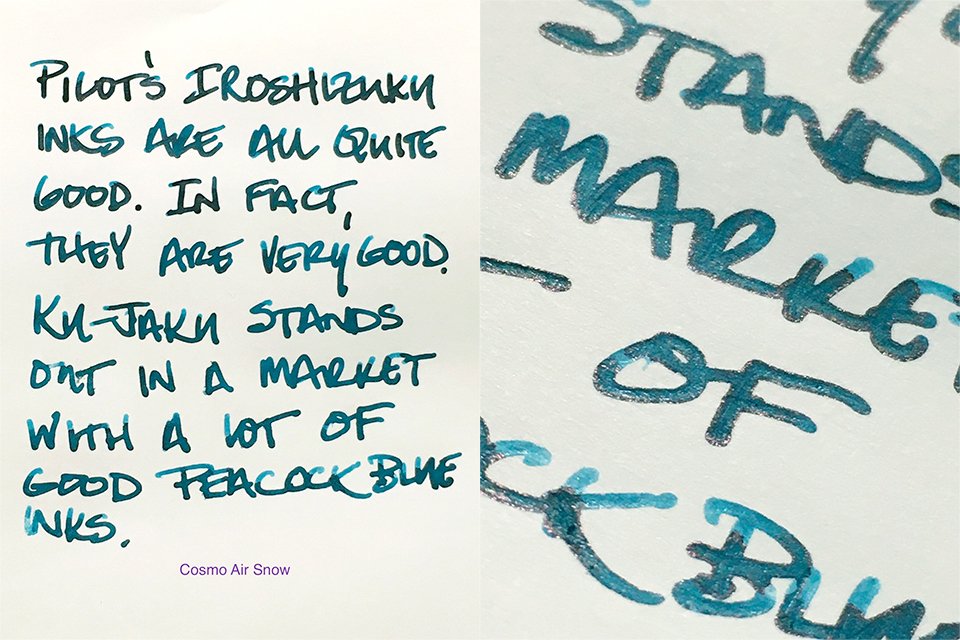 PILOT'S IROSHIZUKU
INKS ARE ALL QUITE
GOOD. IN FACT,
THEY ARE VERY GOOD.
KU-JAKU STANDS
OUT IN A MARKET
WITH A LOT OF
GOOD PEACOCK BLUE
INKS.
Cosmo Air Snow
STANDS
MARKE
OF
CK BLU